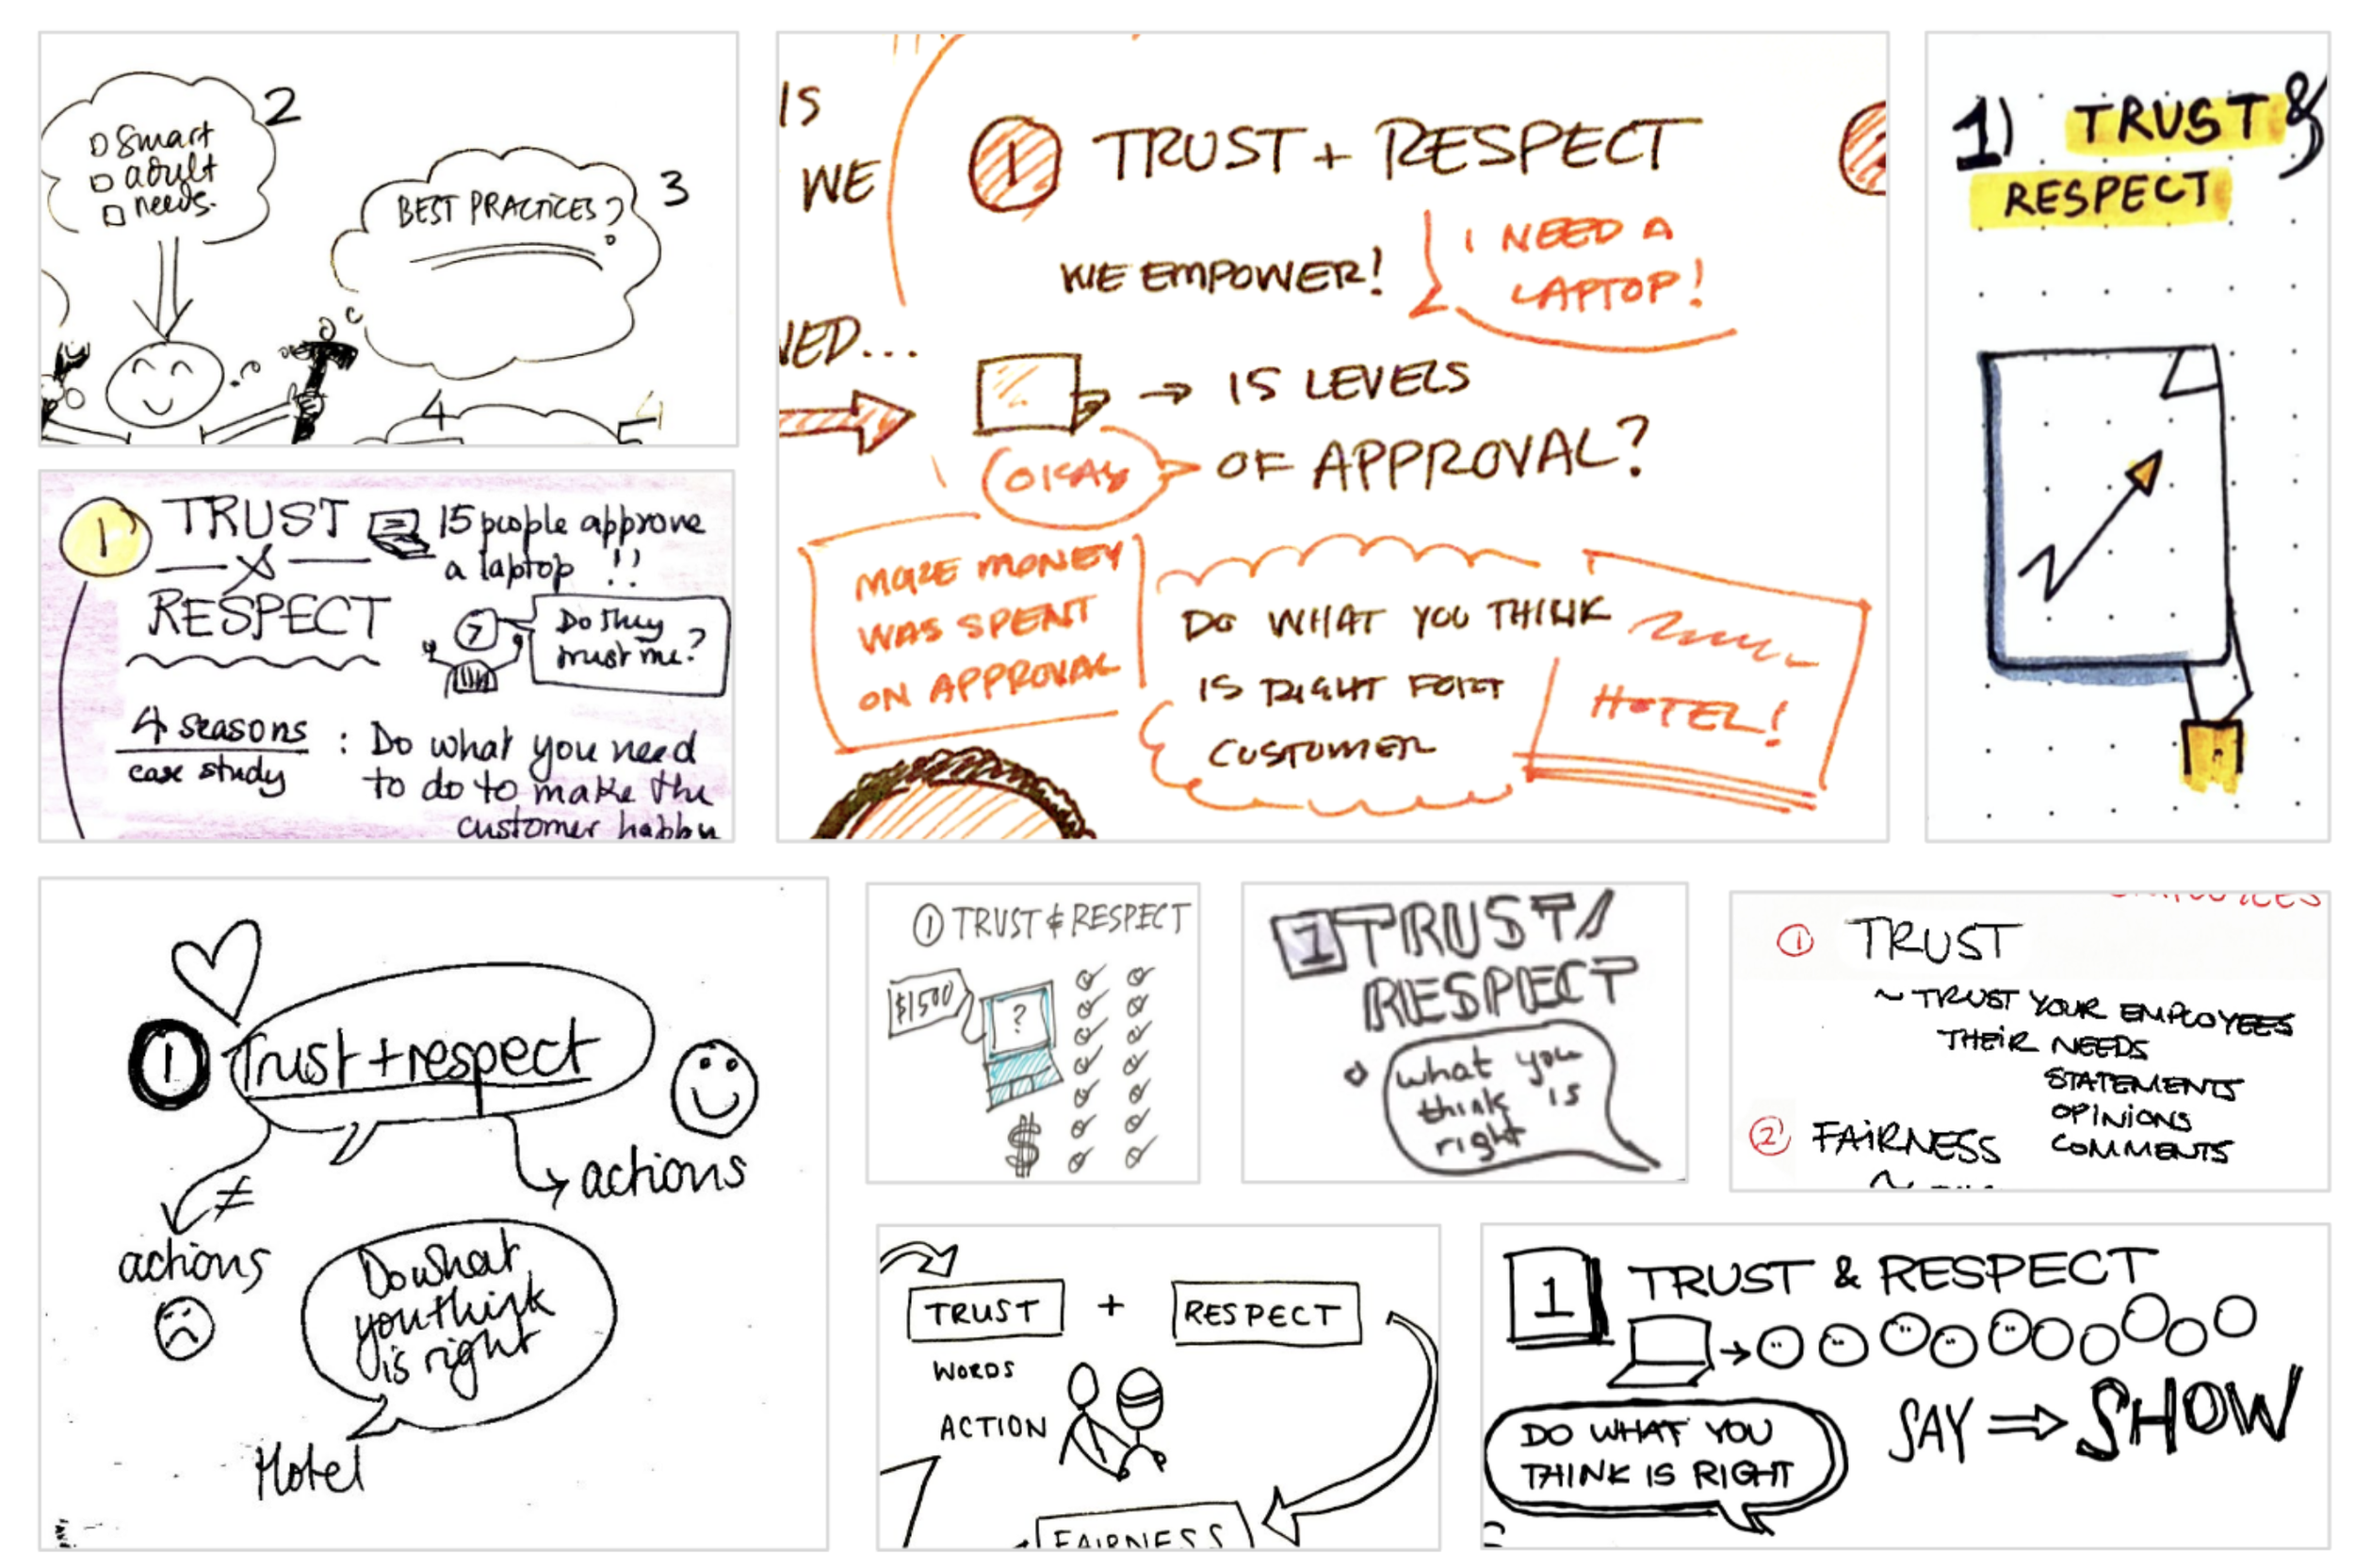 2
Smart
adult
needs.
3
BEST PRACTICES?
4
1
TRUST
&
RESPECT
15 people approve
a laptop !!
?
Do they
trust me?
4 seasons
case study
: Do what you need
to do to make the
customer happy
IS
WE
NED...
1 TRUST + RESPECT
WE EMPOWER!
I NEED A
LAPTOP!
→ 15 LEVELS
OF APPROVAL?
OKAY
MORE MONEY
WAS SPENT
ON APPROVAL
DO WHAT YOU THINK
IS RIGHT FOR
CUSTOMER
HOTEL!
1) TRUST &
RESPECT
1 Trust + respect
≠
actions
actions
Do what
you think
is right
Hotel
1 TRUST & RESPECT
$1500
?
$
1 TRUST/
RESPECT
what you
think is
right
1 TRUST
~ TRUST YOUR EMPLOYEES
THEIR NEEDS
STATEMENTS
OPINIONS
COMMENTS
2 FAIRNESS
TRUST + RESPECT
WORDS
ACTION
FAIRNESS
1 TRUST & RESPECT
DO WHAT YOU
THINK IS RIGHT
SAY ⇒ SHOW